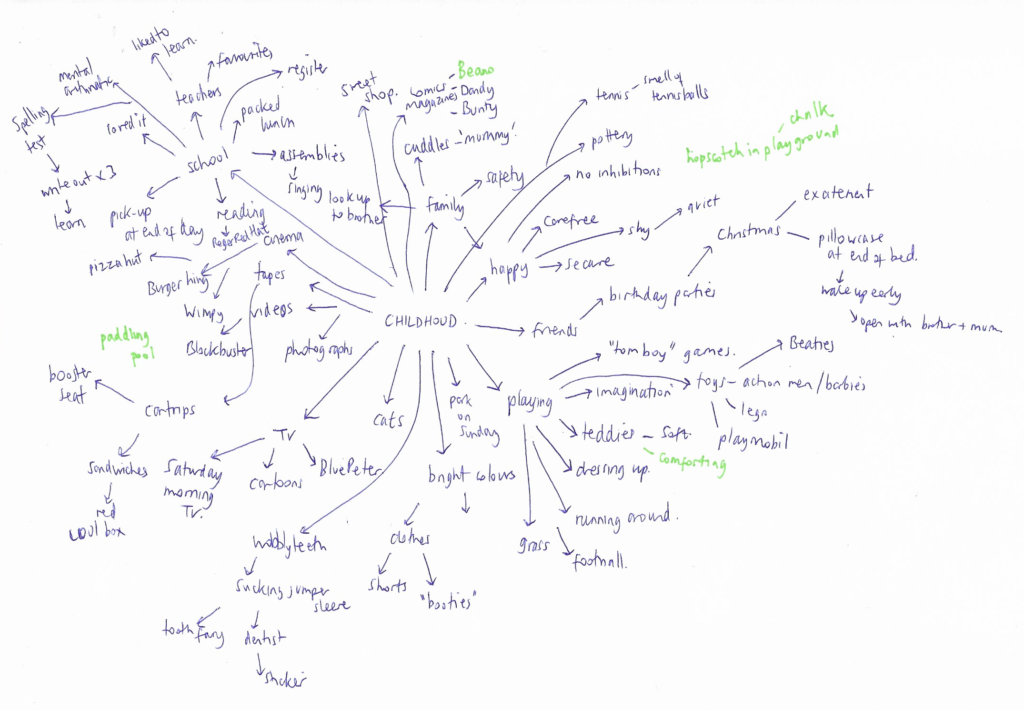 liked to
learn.
favourites
register
mental
arithmetic
teachers
Spelling
test
loved it
packed
lunch
write out x 3
learn
school
assemblies
singing
pick-up
at end of day
reading
Roger Red Hat
cinema
pizza hut
Burger king
Wimpy
tapes
videos
Blockbuster
photographs
sweet
shop.
comics
magazines
- Beano
- Dandy
- Bunty
cuddles - 'mummy'!
look up
to brother
family
safety
tennis - smell of
tennis balls
pottery
no inhibitions
chalk
hopscotch in playground
carefree
happy
shy
quiet
secure
Christmas
excitement
pillowcase
at end of bed.
wake up early
open with brother + mum
CHILDHOOD.
friends
birthday parties
paddling
pool
booster
seat
car trips
sandwiches
red
cool box
TV
Saturday
morning
TV.
cartoons
Blue Peter
cats
park
on
Sunday
bright colours
clothes
shorts
"booties"
playing
"tom boy" games.
imagination
toys - action men / barbies
Beaties
lego
playmobil
teddies - soft.
comforting
dressing up.
running around.
football.
grass
wobbly teeth
sucking jumper
sleeve
tooth fairy
dentist
sticker